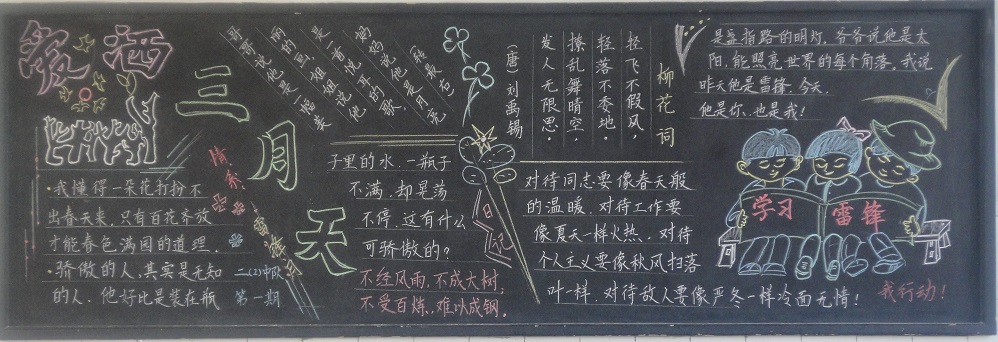 爱洒
三月天
情系雷锋
·我懂得一朵花打扮不
出春天来,只有百花齐放
才能春色满园的道理.
·骄傲的人,其实是无知
的人.他好比是装在瓶
二(2)中队
第一期
哥哥说他是一幅美
丽的画,姐姐说
是一首悦耳的歌,
妈妈说他是月亮
子里的水.一瓶子
不满.却晃荡
不停.这有什么
可骄傲的?
不经风雨,不成大树;
不受百炼,难以成钢。
柳花词
(唐)刘禹锡
轻飞不假风,
轻落不委地.
撩乱舞晴空,
发人无限思.
是盏指路的明灯,爷爷说他是太
阳,能照亮世界的每个角落,我说
昨天他是雷锋.今天.
他是你、也是我!
对待同志要像春天般
的温暖.对待工作要
像夏天一样火热.对待
个人主义要像秋风扫落
叶一样.对待敌人要像严冬一样冷面无情!
学习
雷锋
我行动!